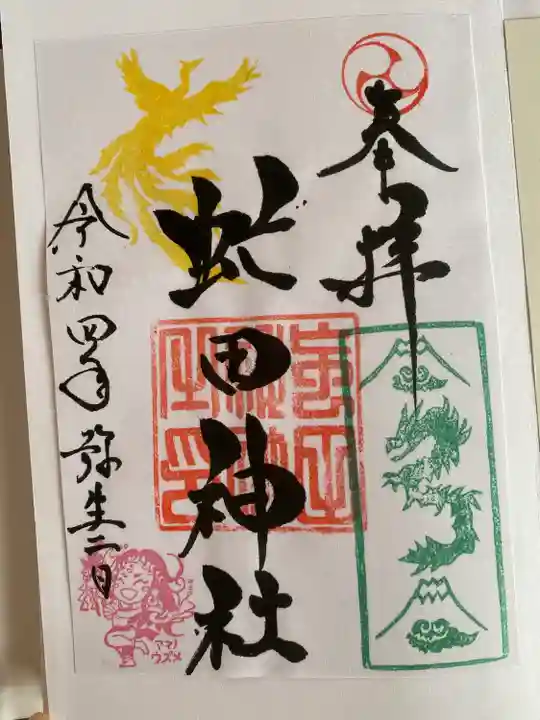 奉拝
虻田神社
令和四年弥生二日
アマノ
ウズメ